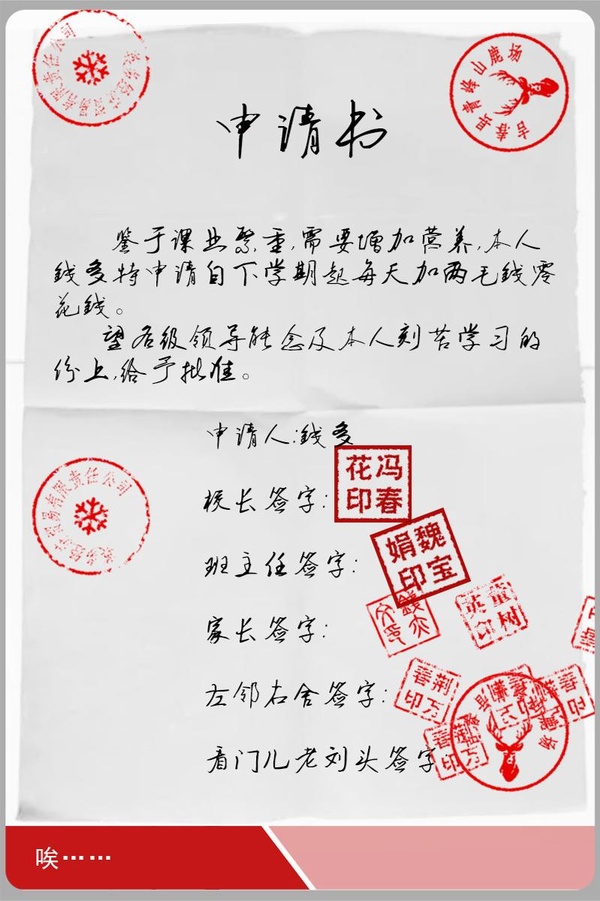 申请书
鉴于课业繁重,需要增加营养,本人
钱多特申请自下学期起每天加两毛钱零
花钱。
望各级领导能念及本人刻苦学习的
份上,给予批准。
申请人:钱多
校长签字:
冯春花印
班主任签字:
魏宝娟印
家长签字:
董树英印
左邻右舍签字:
荆万善印
看门儿老刘头签字
吉春县青峰山鹿场
贸易有限责任公司
唉……